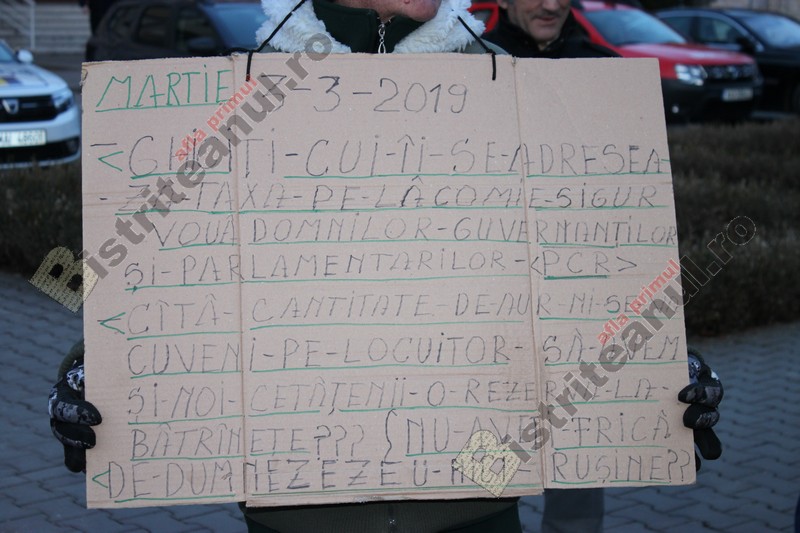 MARTIE 3-3-2019
<GHICIȚI-CUI-ÎI-SE-ADRESEA-
ZĂ-TAXA-PE-LĂCOMIE-SIGUR
VOUĂ DOMNILOR-GUVERNANȚILOR
ȘI-PARLAMENTARILOR-<PCR>
<CÎTĂ-CANTITATE-DE-AUR-NI-SE
CUVENI-PE-LOCUITOR-SĂ-AVEM
ȘI-NOI-CETĂȚENII-O-REZERVĂ-LA-
BĂTRÎNEȚE??? NU-AVEȚI-FRICĂ
<DE-DUMNEZEZEU-NICI-RUȘINE??
afla primul
Bistriteanul.ro
afla primul
Bistriteanul.ro